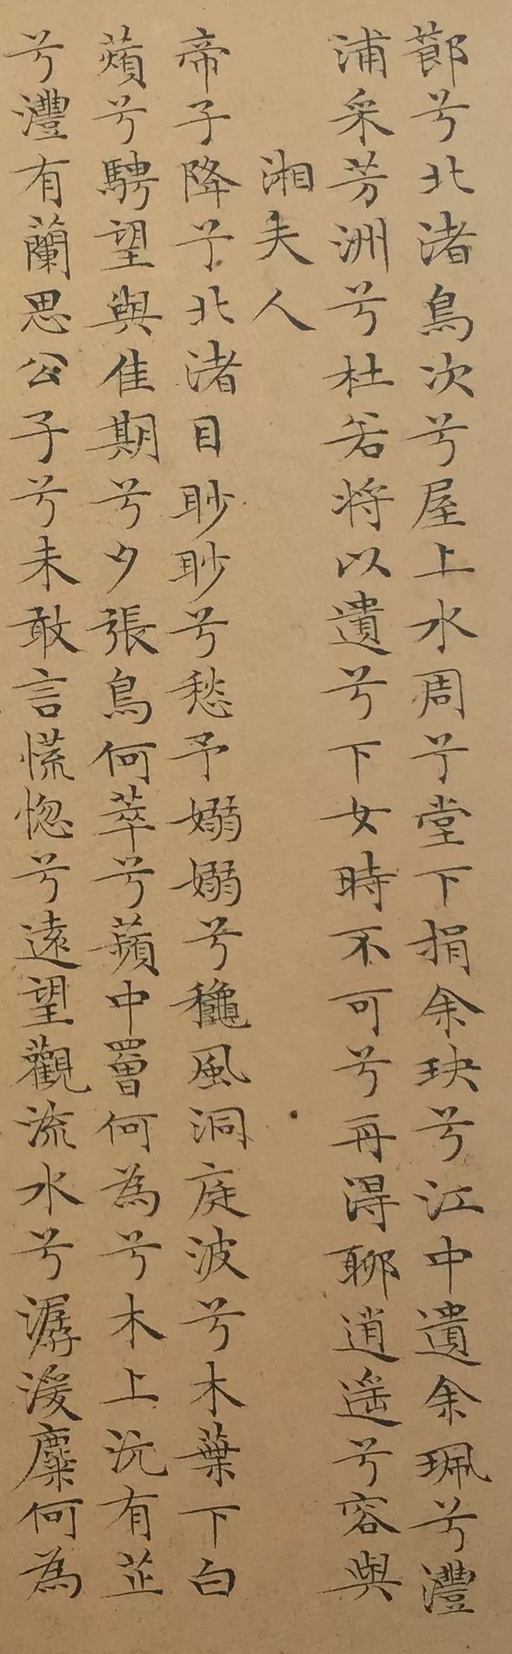 䣌兮北渚鳥次兮屋上水周兮堂下捐余玦兮江中遺余珮兮澧
浦采芳洲兮杜若将以遺兮下女時不可兮再得聊逍遥兮容與
湘夫人
帝子降兮北渚目眇眇兮愁予嫋嫋兮龝風洞庭波兮木葉下白
薠兮騁望與佳期兮夕張鳥何萃兮蘋中罾何為兮木上沅有芷
兮澧有蘭思公子兮未敢言慌惚兮遠望觀流水兮潺湲麋何為